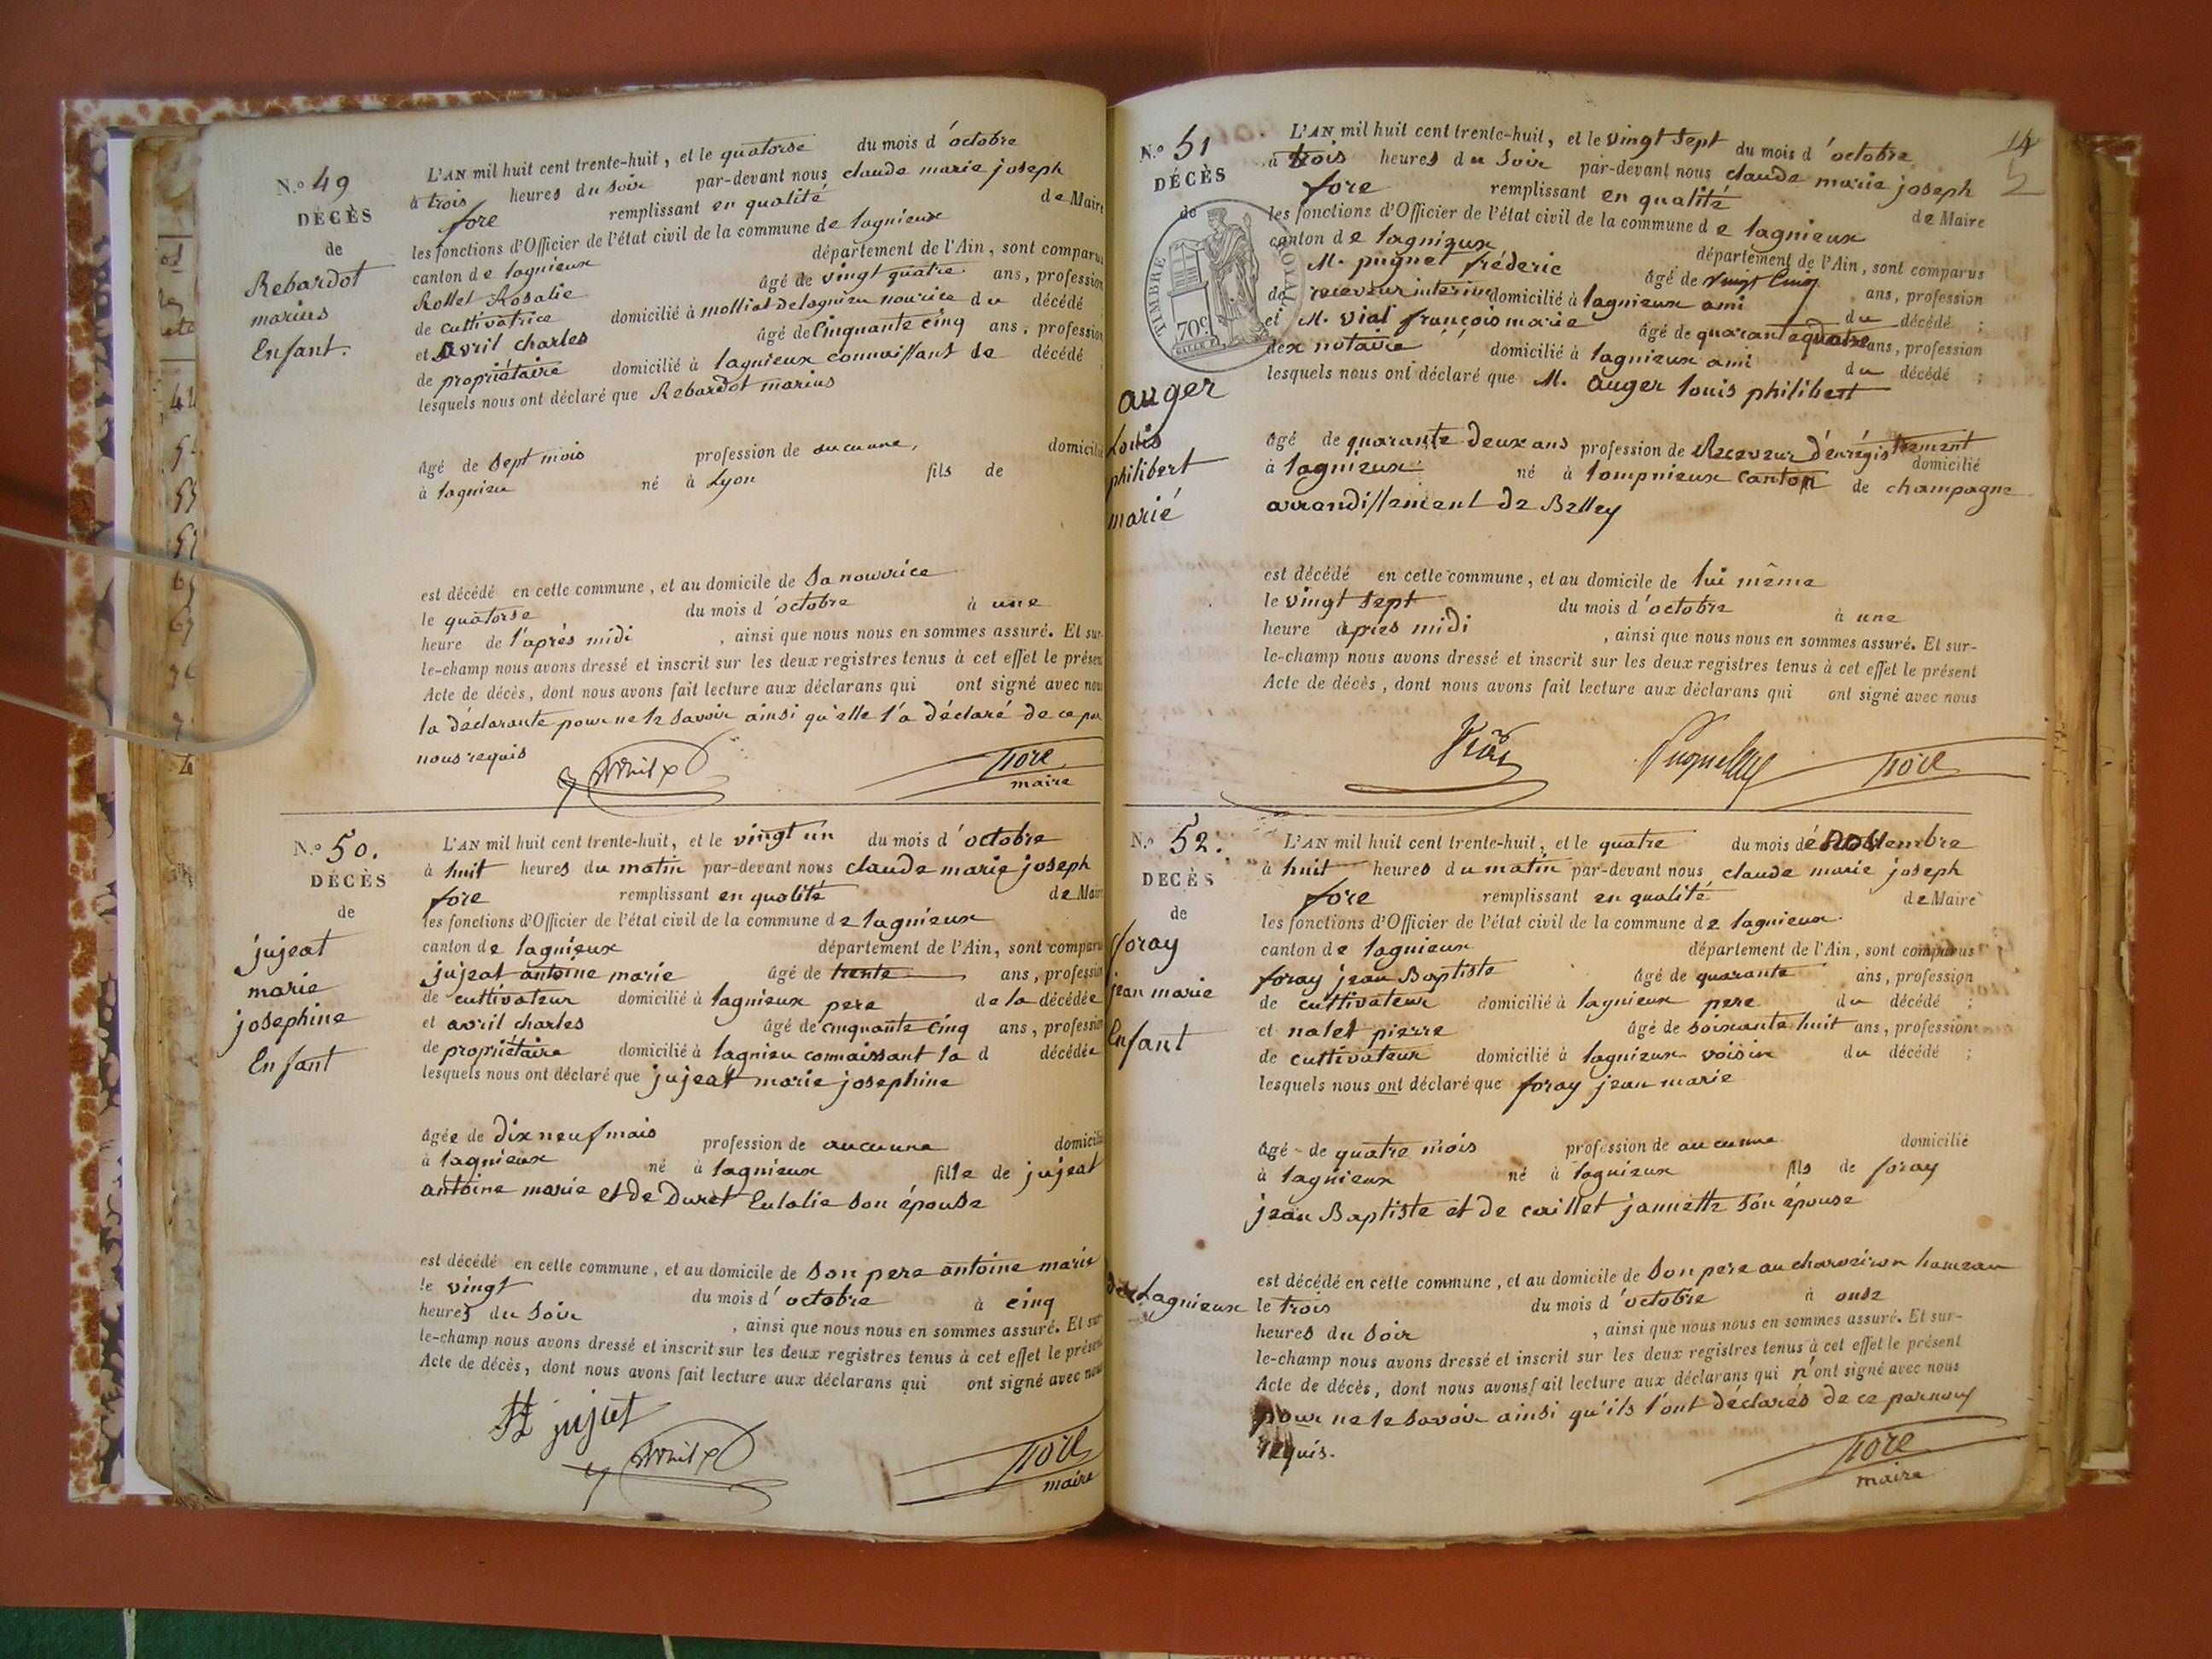 N.° 49
DÉCÈS
de
Rebardot
marius
Enfant.
L'AN mil huit cent trente-huit, et le quatorse du mois d'octobre
à trois heures du soir par-devant nous claude marie joseph
fore remplissant en qualité de Maire
les fonctions d'Officier de l'état civil de la commune de lagnieux
canton de lagnieux département de l'Ain, sont comparus
Rollet Rosalie âgé de vingt quatre ans, profession
de cultivatrice domicilié à molliat de lagnieu nourice du décédé
et avril charles âgé de Cinquante cinq ans, profession
de propriétaire domicilié à lagnieux connaissant le décédé
lesquels nous ont déclaré que Rebardot marius
âgé de sept mois profession de aucunne, domicilié
à lagnieu né à Lyon fils de
est décédé en cette commune, et au domicile de sa nourrice
le quatorse du mois d'octobre à une
heure de l'après midi, ainsi que nous nous en sommes assuré. Et sur-
le-champ nous avons dressé et inscrit sur les deux registres tenus à cet effet le présent
Acte de décès, dont nous avons fait lecture aux déclarans qui ont signé avec nous
la déclarante pour ne le savoir ainsi qu'elle l'a déclaré de ce par
nous requis
Avril fore
maire
N.° 50.
DÉCÈS
de
jujeat
marie
josephine
Enfant
L'AN mil huit cent trente-huit, et le vingt un du mois d'octobre
à huit heures du matin par-devant nous claude marie joseph
fore remplissant en qualité de Maire
les fonctions d'Officier de l'état civil de la commune de lagnieux
canton de lagnieux département de l'Ain, sont comparus
jujeat antoine marie âgé de trente ans, profession
de cultivateur domicilié à lagnieux pere de la décédée
et avril charles âgé de cinquante cinq ans, profession
de propriétaire domicilié à lagnieu connaissant la d décédée
lesquels nous ont déclaré que jujeat marie josephine
âgée de dix neuf mois profession de aucunne domicilié
à lagnieux né à lagnieux fille de jujeat
antoine marie et de Duret Eulalie son épouse
est décédé en cette commune, et au domicile de son pere antoine marie
le vingt du mois d'octobre à cinq
heures du soir, ainsi que nous nous en sommes assuré. Et sur
le-champ nous avons dressé et inscrit sur les deux registres tenus à cet effet le présent
Acte de décès, dont nous avons fait lecture aux déclarans qui ont signé avec nous
jujet
Avril fore
maire
14
5
N.° 51
DÉCÈS
de
TIMBRE ROYAL
70c
auger
Louis
philibert
marié
L'AN mil huit cent trente-huit, et le vingt sept du mois d'octobre
à trois heures du soir par-devant nous claude marie joseph
fore remplissant en qualité de Maire
les fonctions d'Officier de l'état civil de la commune de lagnieux
canton de lagnieux département de l'Ain, sont comparus
M. pugnet fréderic âgé de vingt cinq ans, profession
de receveur interim domicilié à lagnieux ami du décédé;
et M. vial françois marie âgé de quarante quatre ans, profession
dex notaire domicilié à lagnieux ami du décédé;
lesquels nous ont déclaré que M. auger louis philibert
âgé de quarante deux ans profession de Receveur d'énrégistrement domicilié
à lagnieux né à lompnieux canton de champagne
arrondissement de Belley
est décédé en cette commune, et au domicile de lui même
le vingt sept du mois d'octobre à une
heure après midi, ainsi que nous nous en sommes assuré. Et sur-
le-champ nous avons dressé et inscrit sur les deux registres tenus à cet effet le présent
Acte de décès, dont nous avons fait lecture aux déclarans qui ont signé avec nous
Vial Pugnet fore
N.° 52.
DÉCÈS
de
foray
jean marie
Enfant
L'AN mil huit cent trente-huit, et le quatre du mois dé novembre
à huit heures du matin par-devant nous claude marie joseph
fore remplissant en qualité de Maire
les fonctions d'Officier de l'état civil de la commune de lagnieux
canton de lagnieux département de l'Ain, sont comparus
foray jean Baptiste âgé de quarante ans, profession
de cultivateur domicilié à lagnieux pere du décédé;
et nalet pierre âgé de soixante huit ans, profession
de cultivateur domicilié à lagnieux voisin du décédé;
lesquels nous ont déclaré que foray jean marie
âgé de quatre mois profession de aucunne domicilié
à lagnieux né à lagnieux fils de foray
jean Baptiste et de caillet jannette son épouse
est décédé en cette commune, et au domicile de son pere au charveiron hameau
de Lagnieux le trois du mois d'octobre à onse
heures du soir, ainsi que nous nous en sommes assuré. Et sur-
le-champ nous avons dressé et inscrit sur les deux registres tenus à cet effet le présent
Acte de décès, dont nous avons fait lecture aux déclarans qui n'ont signé avec nous
pour ne le savoir ainsi qu'ils l'ont déclarés de ce par nous
requis.
fore
maire